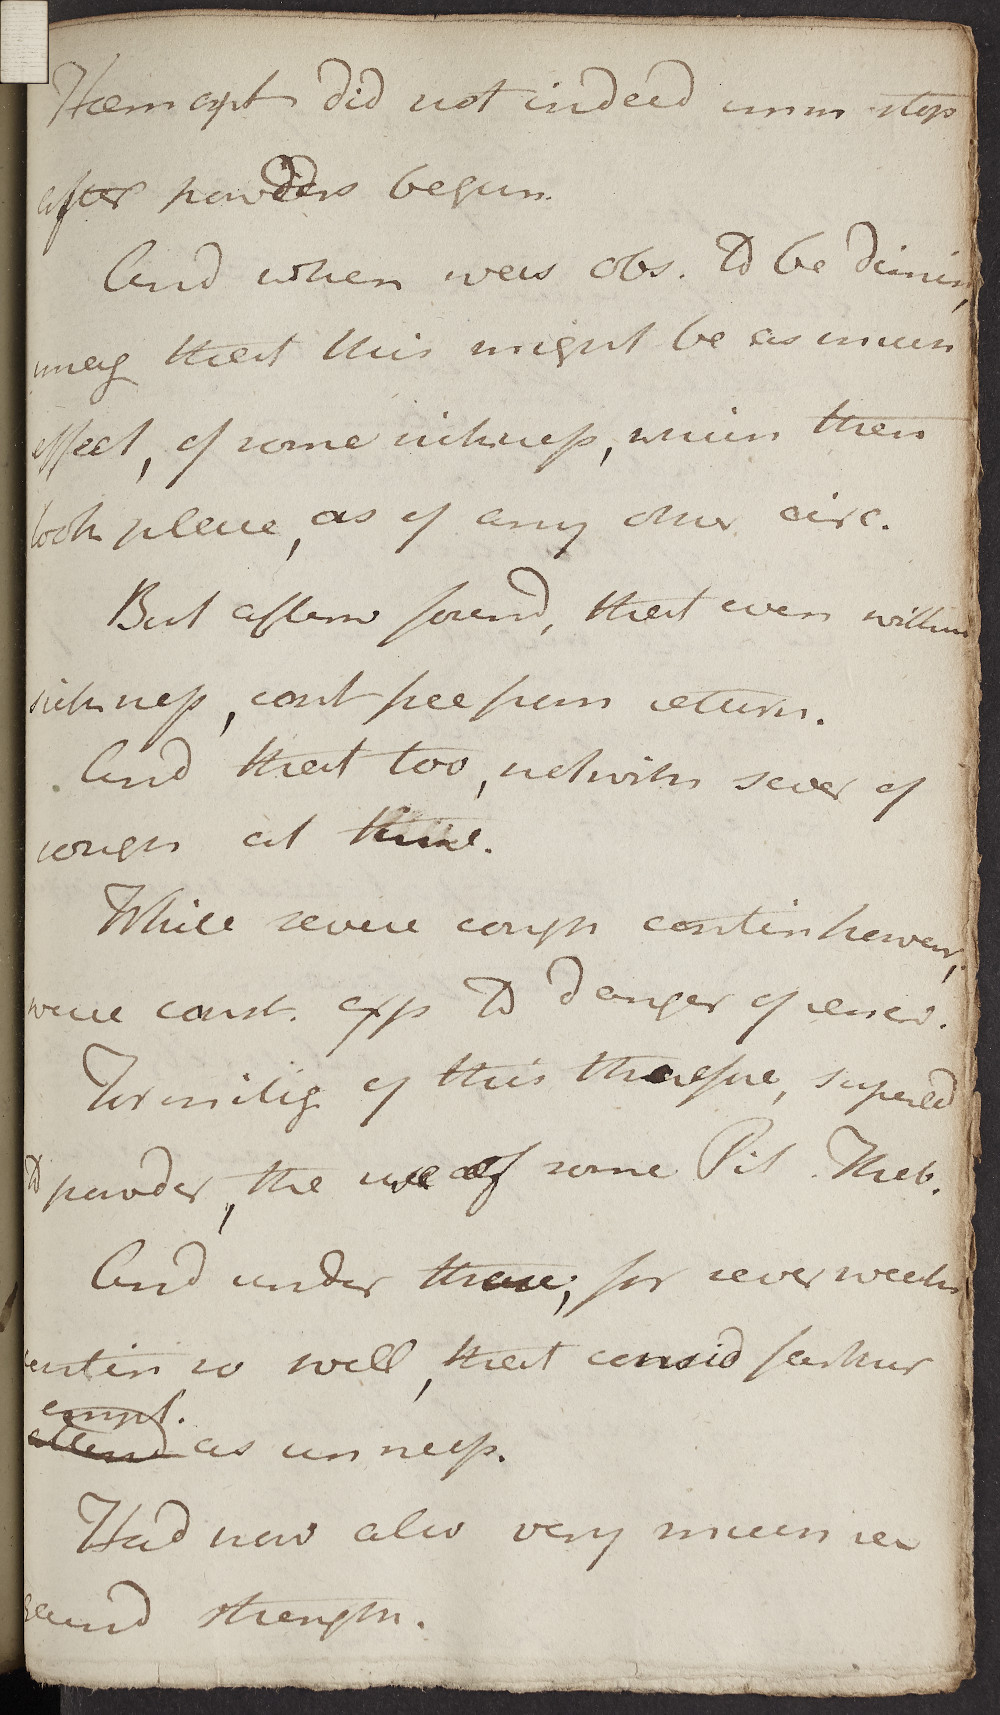 Haemopt did not indeed imm stop
after powders begun.
And when was obs. to be dimin,
imag that this might be as much
effect, of some sickness, which then
took place, as of any other circ.
But afterw found, that even without
sickness, cont free from return.
And that too, notwith sever of
cough at time.
While severe cough contin however,
were const. exp to danger of recur.
For mitig of this therefore, superad
to powder, the use of some Pil Theb.
And under these, for sever weeks
contin so well, that consid farther
empl.
attend as unness.
Had now also very much re
gaind strength.